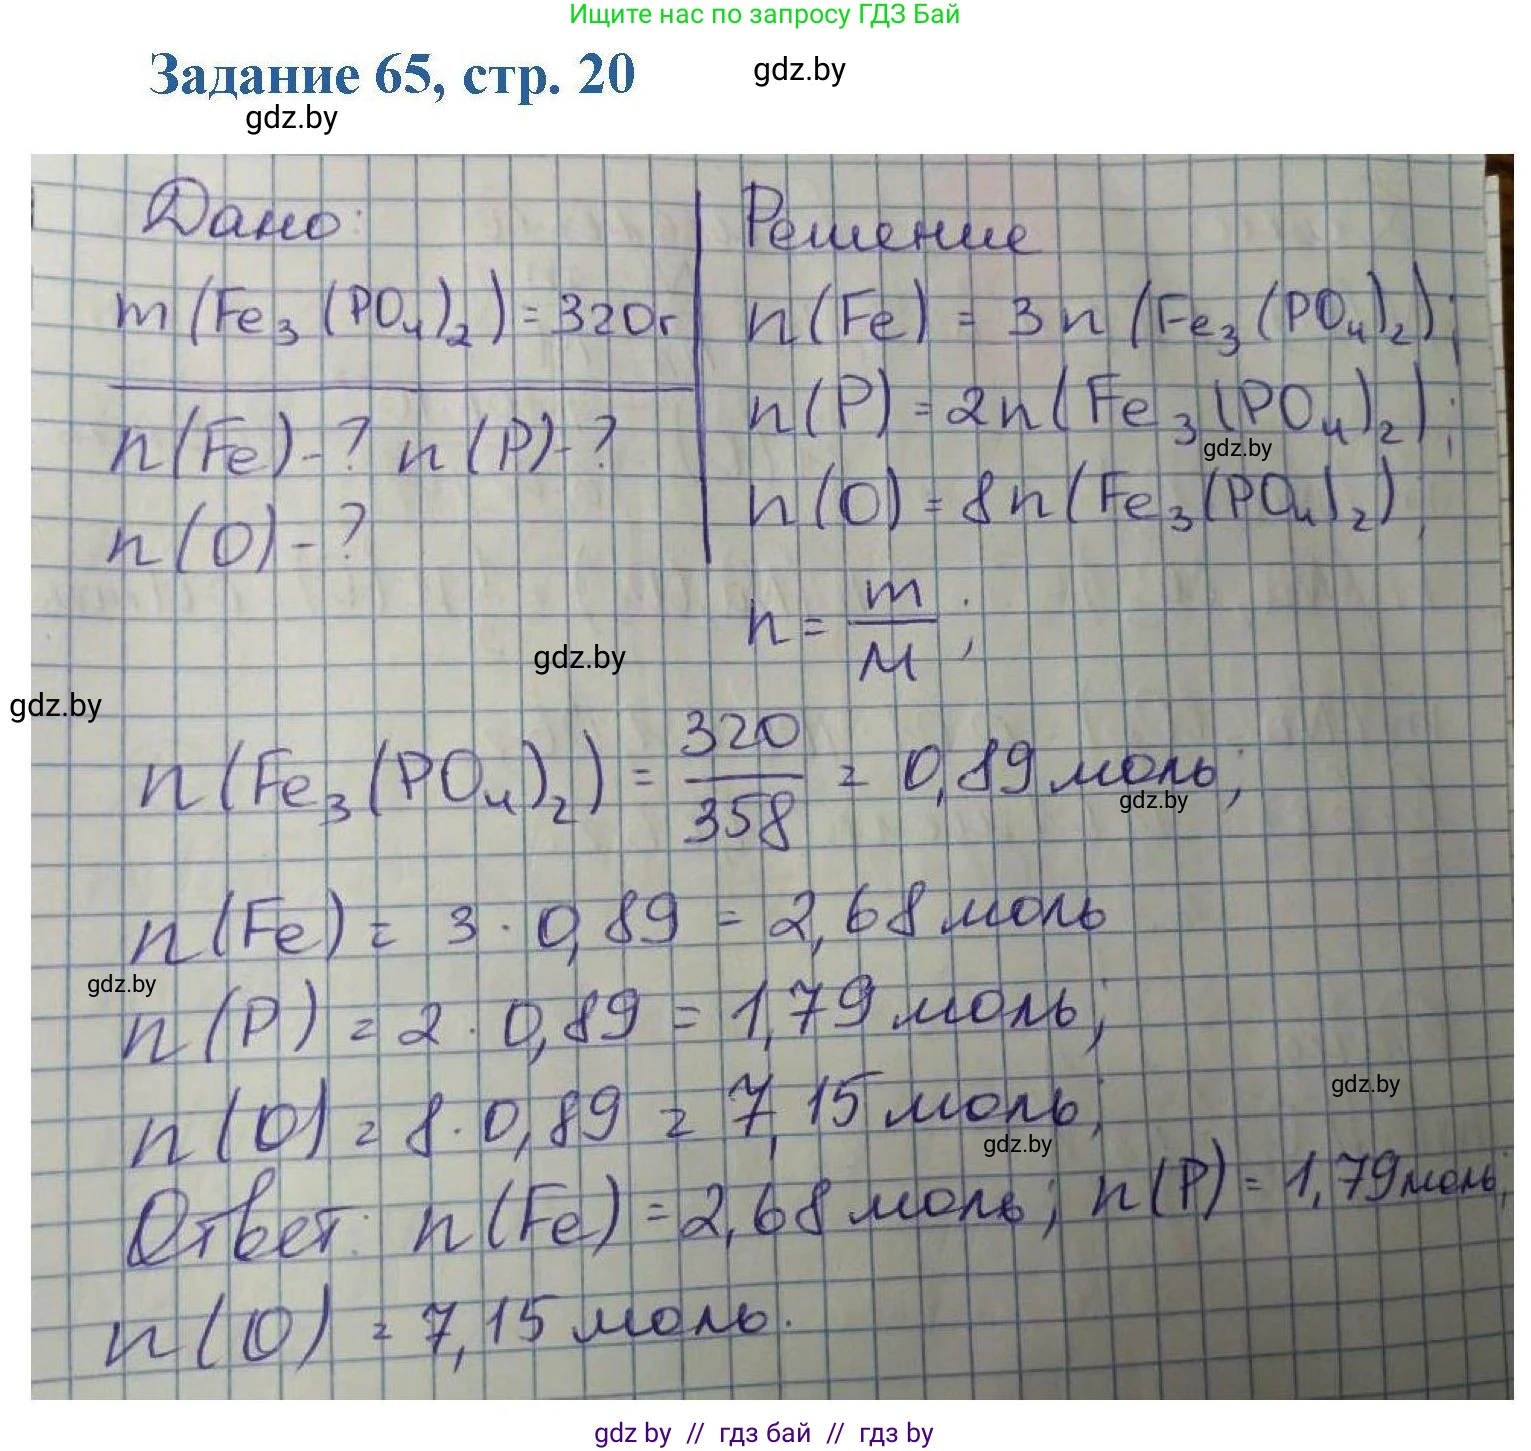 Ищите нас по запросу ГДЗ Бай
Задание 65, стр. 20
gdz.by
gdz.by
Дано:
m(Fe₃(PO₄)₂)=320г
n(Fe)-? n(P)-?
n(O)-?
Решение
n(Fe) = 3n(Fe₃(PO₄)₂);
n(P) = 2n(Fe₃(PO₄)₂);
gdz.by
n(O) = 8n(Fe₃(PO₄)₂);
n = m/M;
gdz.by
gdz.by
n(Fe₃(PO₄)₂) = 320/358 = 0,89 моль;
gdz.by
n(Fe) = 3 · 0,89 = 2,68 моль
gdz.by
n(P) = 2 · 0,89 = 1,79 моль;
gdz.by
n(O) = 8 · 0,89 = 7,15 моль;
gdz.by
Ответ: n(Fe) = 2,68 моль; n(P) = 1,79 моль;
n(O) = 7,15 моль.
gdz by // гдз бай // гдз by